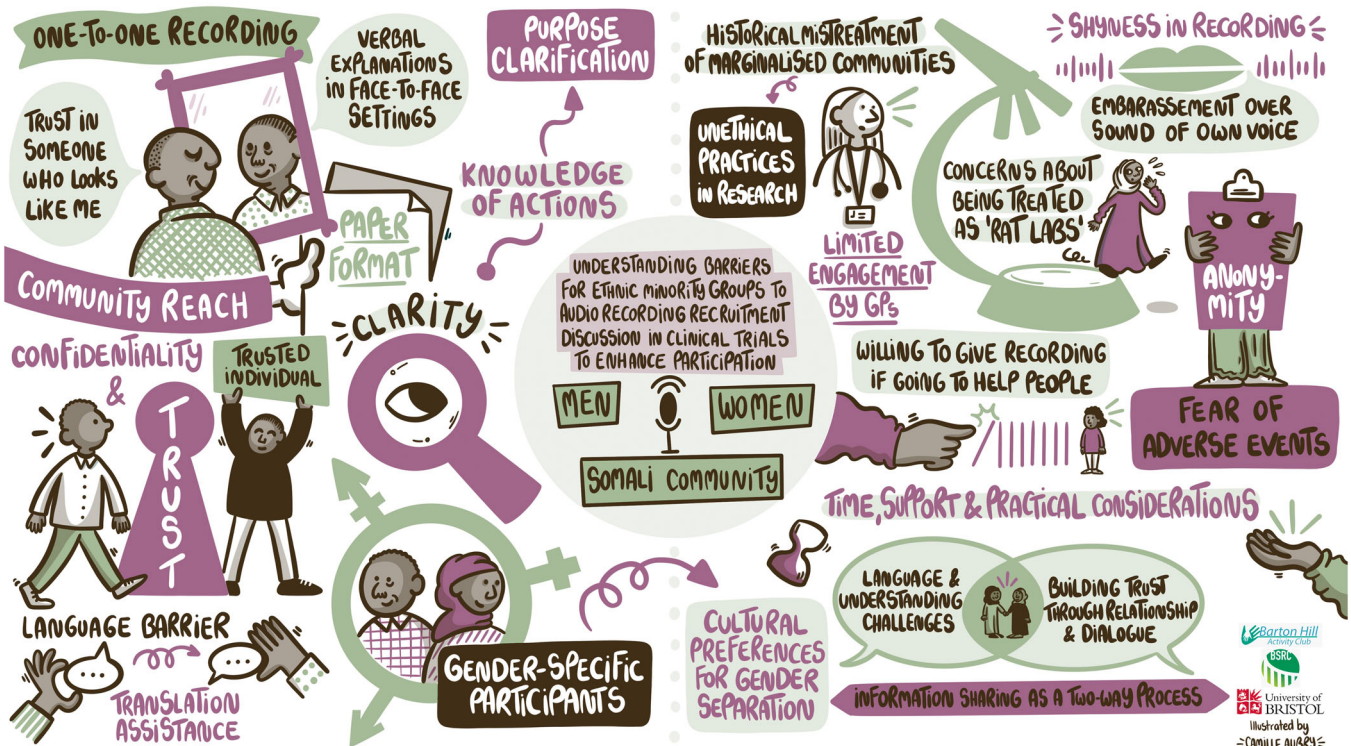 ONE-TO-ONE RECORDING
TRUST IN
SOMEONE
WHO LOOKS
LIKE ME
VERBAL
EXPLANATIONS
IN FACE-TO-FACE
SETTINGS
PURPOSE
CLARIFICATION
KNOWLEDGE
OF ACTIONS
PAPER
FORMAT
COMMUNITY REACH
CLARITY
CONFIDENTIALITY
&
TRUST
TRUSTED
INDIVIDUAL
LANGUAGE BARRIER
TRANSLATION
ASSISTANCE
GENDER-SPECIFIC
PARTICIPANTS
UNDERSTANDING BARRIERS
FOR ETHNIC MINORITY GROUPS TO
AUDIO RECORDING RECRUITMENT
DISCUSSION IN CLINICAL TRIALS
TO ENHANCE PARTICIPATION
MEN
WOMEN
SOMALI COMMUNITY
HISTORICAL MISTREATMENT
OF MARGINALISED COMMUNITIES
UNETHICAL
PRACTICES
IN RESEARCH
LIMITED
ENGAGEMENT
BY GPs
SHYNESS IN RECORDING
EMBARASSEMENT OVER
SOUND OF OWN VOICE
CONCERNS ABOUT
BEING TREATED
AS 'RAT LABS'
ANONY-
MITY
WILLING TO GIVE RECORDING
IF GOING TO HELP PEOPLE
FEAR OF
ADVERSE EVENTS
TIME, SUPPORT & PRACTICAL CONSIDERATIONS
CULTURAL
PREFERENCES
FOR GENDER
SEPARATION
LANGUAGE &
UNDERSTANDING
CHALLENGES
BUILDING TRUST
THROUGH RELATIONSHIP
& DIALOGUE
INFORMATION SHARING AS A TWO-WAY PROCESS
Barton Hill
Activity Club
BSRC
University of
BRISTOL
Illustrated by
CAMILLE AUBRY